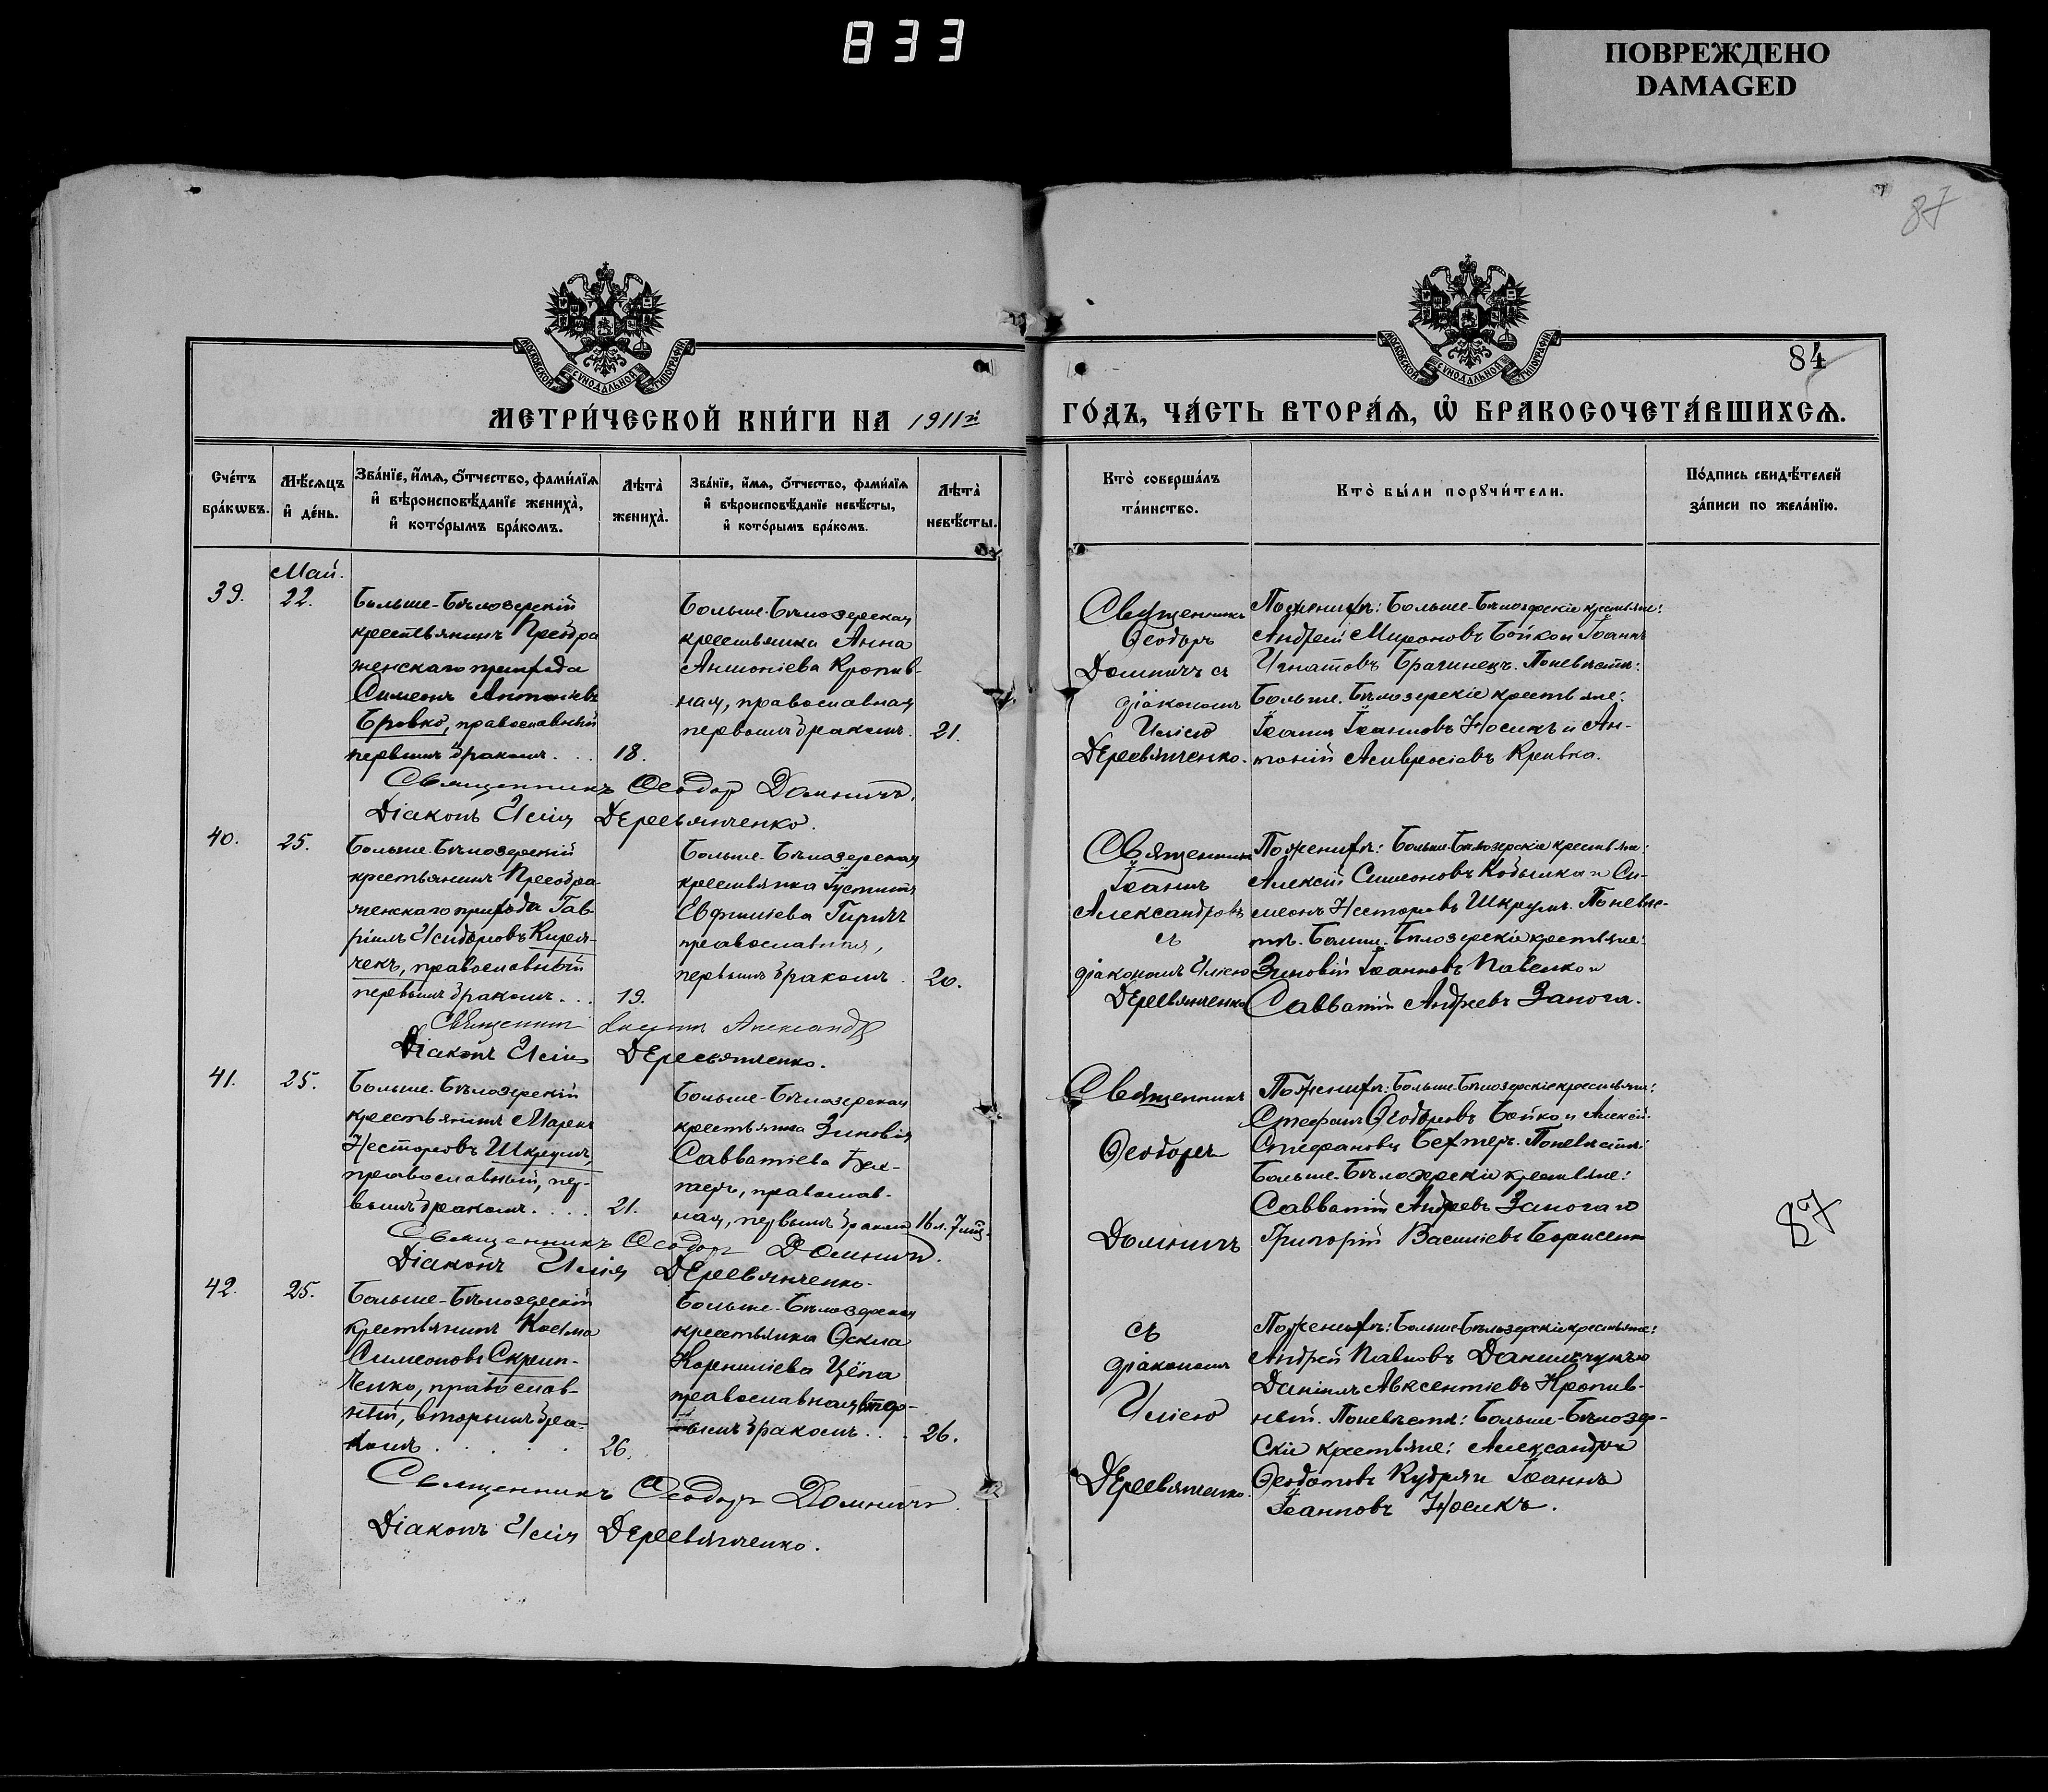 833
ПОВРЕЖДЕНО
DAMAGED
87
МОСКОВСКОЙ СУНОДАЛЬНОЙ ТИПОГРАФІИ
МОСКОВСКОЙ СУНОДАЛЬНОЙ ТИПОГРАФІИ
84
МЕТРИ́ЧЕСКОЙ КНИ́ГИ НА 1911й
ГО́ДЪ, ЧА́СТЬ ВТОРА́Я, Ѡ҆ БРАКОСОЧЕТА́ВШИХСЯ.
Сче́тъ
бра́кѡвъ.
Мѣ́сяцъ
и҆ де́нь.
Зва́нїе, и҆́мѧ, ѻ҆́тчество, фами́лїѧ
и҆ вѣроисповѣ́данїе жениха̀,
и҆ кото́рымъ бра́комъ.
Лѣта̀
жениха̀.
Зва́нїе, и҆́мѧ, ѻ҆́тчество, фами́лїѧ
и҆ вѣроисповѣ́данїе невѣ́сты,
и҆ кото́рымъ бра́комъ.
Лѣта̀
невѣ́сты.
Кто̀ соверша́лъ
та́инство.
Кто̀ бы́ли порꙋчи́тели.
По́дпись свидѣ́телей
за́писи по жела́нїю.
39.
Май.
22.
Больше-Бѣлозерскій
крестьянинъ Преобра
женскаго прихода
Симеонъ Антоніевъ
Бровко, православный
первымъ бракомъ. . .
18.
Больше-Бѣлозерская
крестьянка Анна
Антоніева Кропив-
ная, православная
первымъ бракомъ.
21.
Священникъ
Ѳеодоръ
Домничъ съ
діакономъ
Иліею
Деревянченко.
По женихѣ: Больше-Бѣлозерскіе крестьяне:
Андрей Мироновъ Бойко и Іоаннъ
Игнатовъ Брагинецъ. По невѣстѣ:
Больше-Бѣлозерскіе крестьяне:
Іоаннъ Іоанновъ Носикъ и Ан-
тоній Амвросіевъ Кривка.
Священникъ Ѳеодоръ Домничъ.
Діаконъ Илія Деревянченко.
40.
25.
Больше-Бѣлозерскій
крестьянинъ Преобра-
женскаго прихода Гав-
ріилъ Исидоровъ Кирея-
чекъ, православный
первымъ бракомъ. . .
19.
Больше-Бѣлозерская
крестьянка
Евфиміева
православная,
первымъ бракомъ.
20.
Священникъ
Іоаннъ
Александровъ
съ
діакономъ Иліею
Деревянченко
По женихѣ: Больше-Бѣлозерскіе крестьяне:
Алексій Симеоновъ Кобылка и Си-
меонъ Несторовъ Шкрумъ. По невѣс-
тѣ: Больше-Бѣлозерскіе крестьяне:
Зиновій Іоанновъ Павенко и
Савватій Андреевъ Занога.
Священникъ Іоаннъ Александр
Діаконъ Илія Деревянченко.
41.
25.
Больше-Бѣлозерскій
крестьянинъ Маркъ
Несторовъ Шкрумъ,
православный, пер-
вымъ бракомъ. . . .
21.
Больше-Бѣлозерская
крестьянка Зиновія
Савватіева Бех-
теръ, православ-
ная, первымъ бракомъ
16 л. 7 мѣс.
Священникъ
Ѳеодоръ
Домничъ
По женихѣ: Больше-Бѣлозерскіе крестьяне:
Стефанъ Ѳеодоровъ Бойко и Алексій
Стефановъ Бехтеръ. По невѣстѣ:
Больше-Бѣлозерскіе крестьяне:
Савватій Андреевъ Занога и
Григорій Василіевъ Борисенко
87
Священникъ Ѳеодоръ Домничъ.
Діаконъ Илія Деревянченко.
42.
25.
Больше-Бѣлозерскій
крестьянинъ Косма
Симеоновъ Скрип-
ченко, православ-
ный, вторымъ бра-
комъ . . . . .
26.
Больше-Бѣлозерская
крестьянка Ѳекла
Корниліева Цёпа
православная, втор-
ымъ бракомъ . . .
26.
съ
діакономъ
Иліею
Деревянченко.
По женихѣ: Больше-Бѣлозерскіе крестьяне:
Андрей Павловъ Данильчукъ и
Даніилъ Авксентіевъ Кропив-
ный. По невѣстѣ: Больше-Бѣлозер-
скіе крестьяне: Александръ
Ѳеодотовъ Кудря и Іоаннъ
Іоанновъ Носикъ.
Священникъ Ѳеодоръ Домничъ.
Діаконъ Илія Деревянченко.